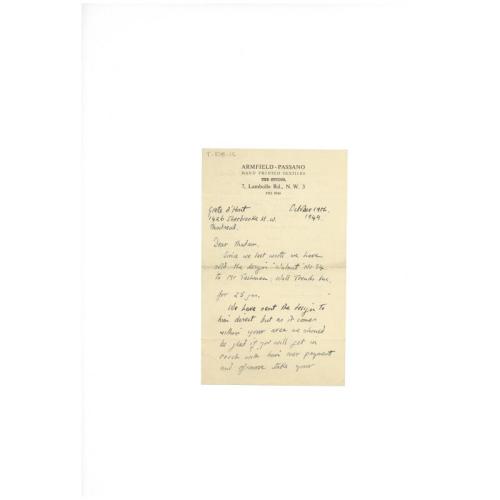 ARMFIELD-PASSANO
HAND PRINTED TEXTILES
THE STUDIO,
7, Lambolle Rd., N. W. 3
October 19th,
1426 Sherbrooke St. W. 1949.
Montreal.
Dear Madam,
Since we last wrote we have
sold the design "Walnut" No 54
to Mr Wall Trends Inc.
for 25 gns.
We have sent the design to
him direct but as it comes
within your area we should
be glad if you will get in
touch with him over payment
and of course take your